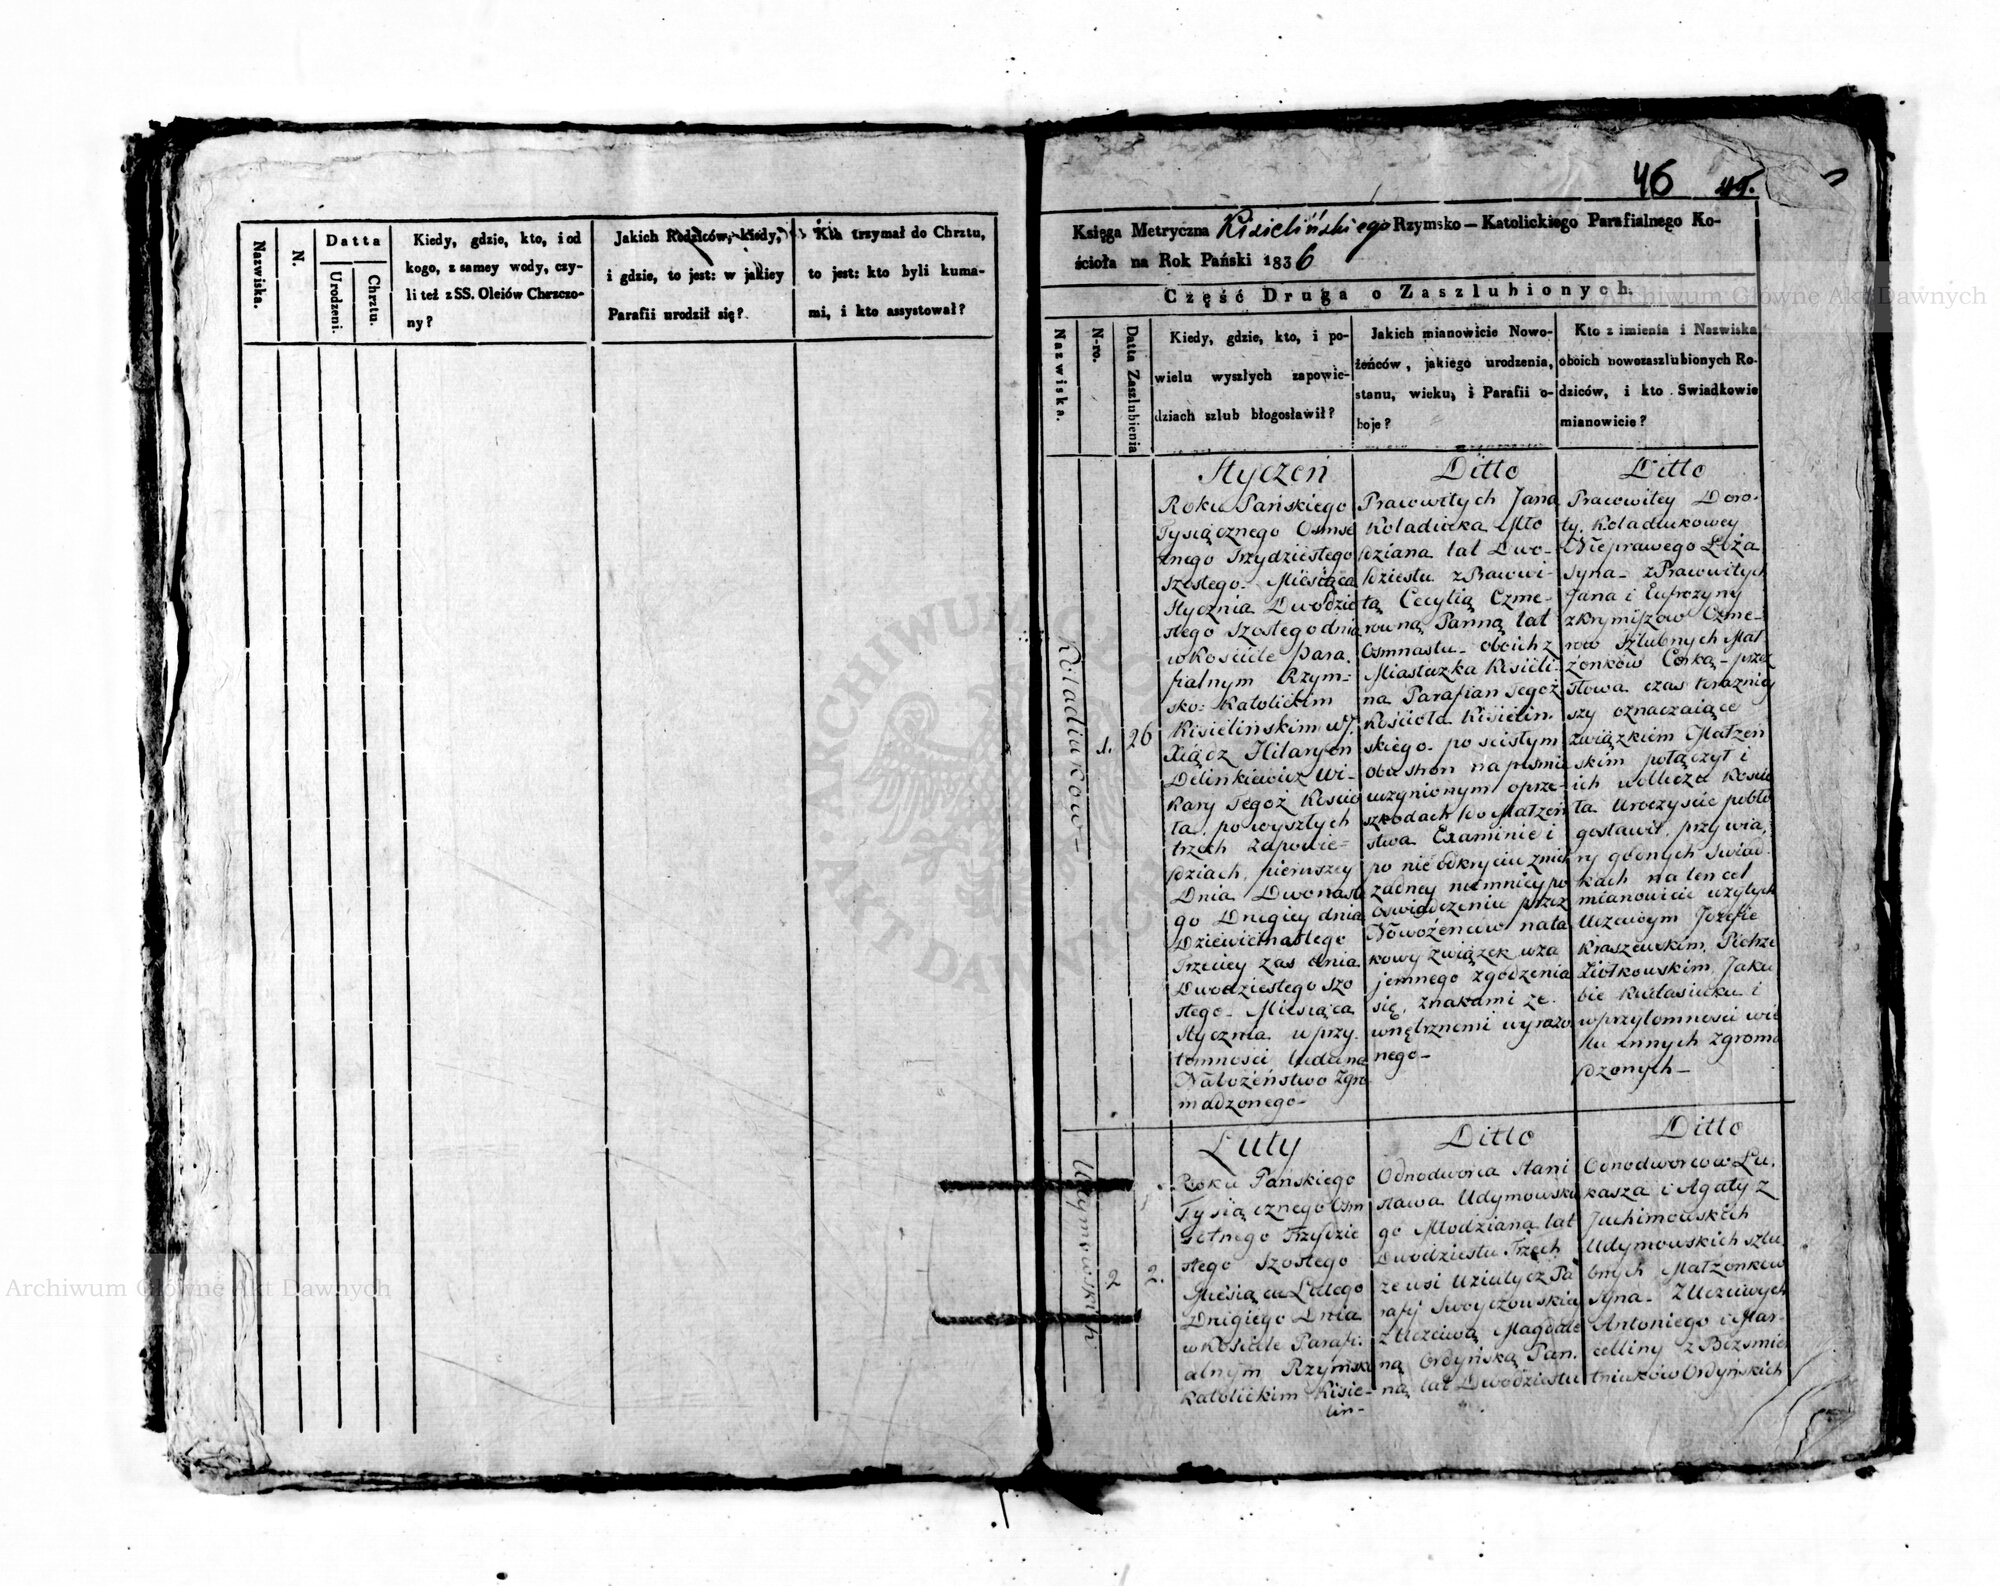 Nazwiska.
N.
Datta
Urodzeni.
Chrztu.
Kiedy, gdzie, kto, i od
kogo, z samey wody, czy-
li też z SS. Oleiów Chrzczo-
ny?
Jakich Rodziców, kiedy,
i gdzie, to jest: w jakiey
Parafii urodził się?
Kto trzymał do Chrztu,
to jest: kto byli kuma-
mi, i kto assystował?
46 45.
Księga Metryczna Kisielińskiego Rzymsko-Katolickiego Parafialnego Ko-
ścioła na Rok Pański 1836
Część Druga o Zaszlubionych.
Nazwiska.
N-ro.
Datta Zaszlubienia
Kiedy, gdzie, kto, i po-
wielu wyszłych zapowie-
dziach szlub błogosławił?
Jakich mianowicie Nowo-
żeńców, jakiego urodzenia,
stanu, wieku, i Parafii o-
boje?
Kto z imienia i Nazwiska
oboich nowozaszlubionych Ro-
dziców, i kto Swiadkowie
mianowicie?
Koladiuków-
1.
26
Styczeń
Roku Pańskiego
Tysiącznego Osmse
tnego Trzydziestego
szostego. Miesiąca
Stycznia Dwudzie
stego szostego dnia
w Kościele Para.
fialnym Rzym-
sko: Katolickim
Kisielińskim WJ.
Xiądz Hilaryon
Delinkiewicz Wi-
kary Tegoż Kościo
ła. po wyszłych
trzech Zapowie=
dziach, pierwszey
Dnia Dwonaste
go Drugiey dnia
Dziewietnastego
Trzeciey zas dnia
Dwudziestego szo
stego. Miesiąca
Stycznia. w przy.
tomności ludu na
Nabożeństwo Zgro
madzonego-
Ditto
Pracowitych Jana
Koladiuka Mło
dziana lat Dwo-
dziestu z Pracowi-
tą Cecylią Czme-
rowną Panną lat
Osmnastu. oboich z
Miasteczka Kisieli-
na Parafian Tegoż
Kościoła Kisielin.
skiego. po scisłym
obu stron na pismie
uczynionym o prze-
szkodach do Małżeń
stwa Examinie i
po nie odkryciu z nich
żadney niemniey po
oswiadczeniu przez
Nowożencow na ta
kowy związek wza
jemnego zgodzenia
się, znakami ze.
wnętrznemi wyrażo
nego-
Ditto
Pracowitey Doro-
ty, Koladiukowey
Nieprawego Łoża
syna- z Pracowitych
Jana i Eufrozyny
z Krymiszow Czme-
row Szlubnych Mał
żonków Corką- przez
słowa czas terazniey
szy oznaczaiące
związkiem Małżeń
skim połączył i
ich w obliczu Kościo
ła Uroczyscie pobło
gosławił, przy wia,
ry godnych swiad.
kach na ten cel
mianowicie użytych
Uczciwym Jozefie
Kraszewskim, Piotrze
Ziołkowskim, Jaku
bie Kudasiuku i
w przytomnosci wie
lu innych Zgroma
dzonych-
Udymowskich
2
2.
Luty
Roku Pańskiego
Tysiącznego Osm
setnego Trzydzie
stego szostego
Miesiąca Lutego
Drugiego Dnia
w Kościele Parafi.
alnym Rzymsko
Katolickim Kisie-
lin-
Ditto
Odnodworca Stani
sława Udymowskie
go Młodziana lat
Dwodziestu Trzech
ze wsi Uziutycz Pa
rafij Swoyczowskiej
z Uczciwą Magdale
ną Ordyńską Pan.
ną lat Dwodziestu
Ditto
Odnodworcow Łu.
kasza i Agaty z
Juchimowskich
Udymowskich szlu.
bnych Małżonkow
Syna- Z Uczciwych
Antoniego i Mar-
celliny z Bezsmier
tniuków Ordyńskich
Archiwum Główne Akt Dawnych
Archiwum Główne Akt Dawnych
ARCHIWUM GŁÓWNE AKT DAWNYCH